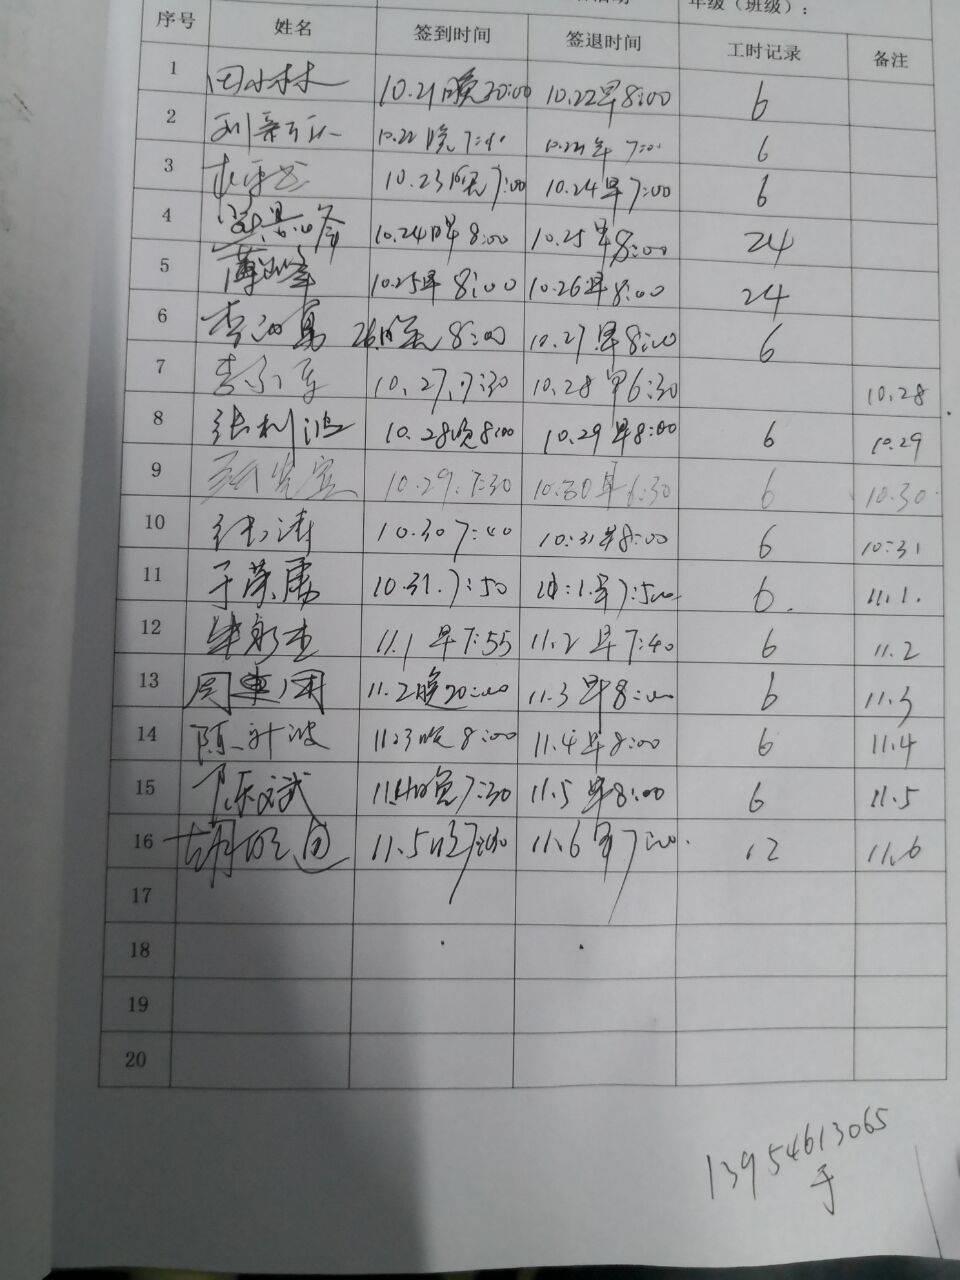 年级（班级）：
序号 姓名 签到时间 签退时间 工时记录 备注
1 田小林 10.21晚20:00 10.22早8:00 6
2 10.22晚7:40 10.23早7:00 6
3 10.23晚7:00 10.24早7:00 6
4 10.24早8:00 10.25早8:00 24
5 10.25早8:00 10.26早8:00 24
6 26晚8:00 10.27早8:00 6
7 10.27.7:30 10.28早6:30 10.28
8 张利波 10.28晚8:00 10.29早8:00 6 10.29
9 10.29.7:30 10.30早6:30 6 10.30
10 10.30 7:40 10:31早8:00 6 10:31
11 于荣勇 10.31.7:50 11:1.早7:50 6. 11.1.
12 11.1早7:55 11.2早7:40 6 11.2
13 11.2晚20:00 11.3早8:00 6 11.3
14 11.3晚8:00 11.4早8:00 6 11.4
15 陈斌 11.4晚7:30 11.5早8:00 6 11.5
16 11.5晚7:40 11.6早7:00. 12 11.6
17
18
19
20
13954613065
于